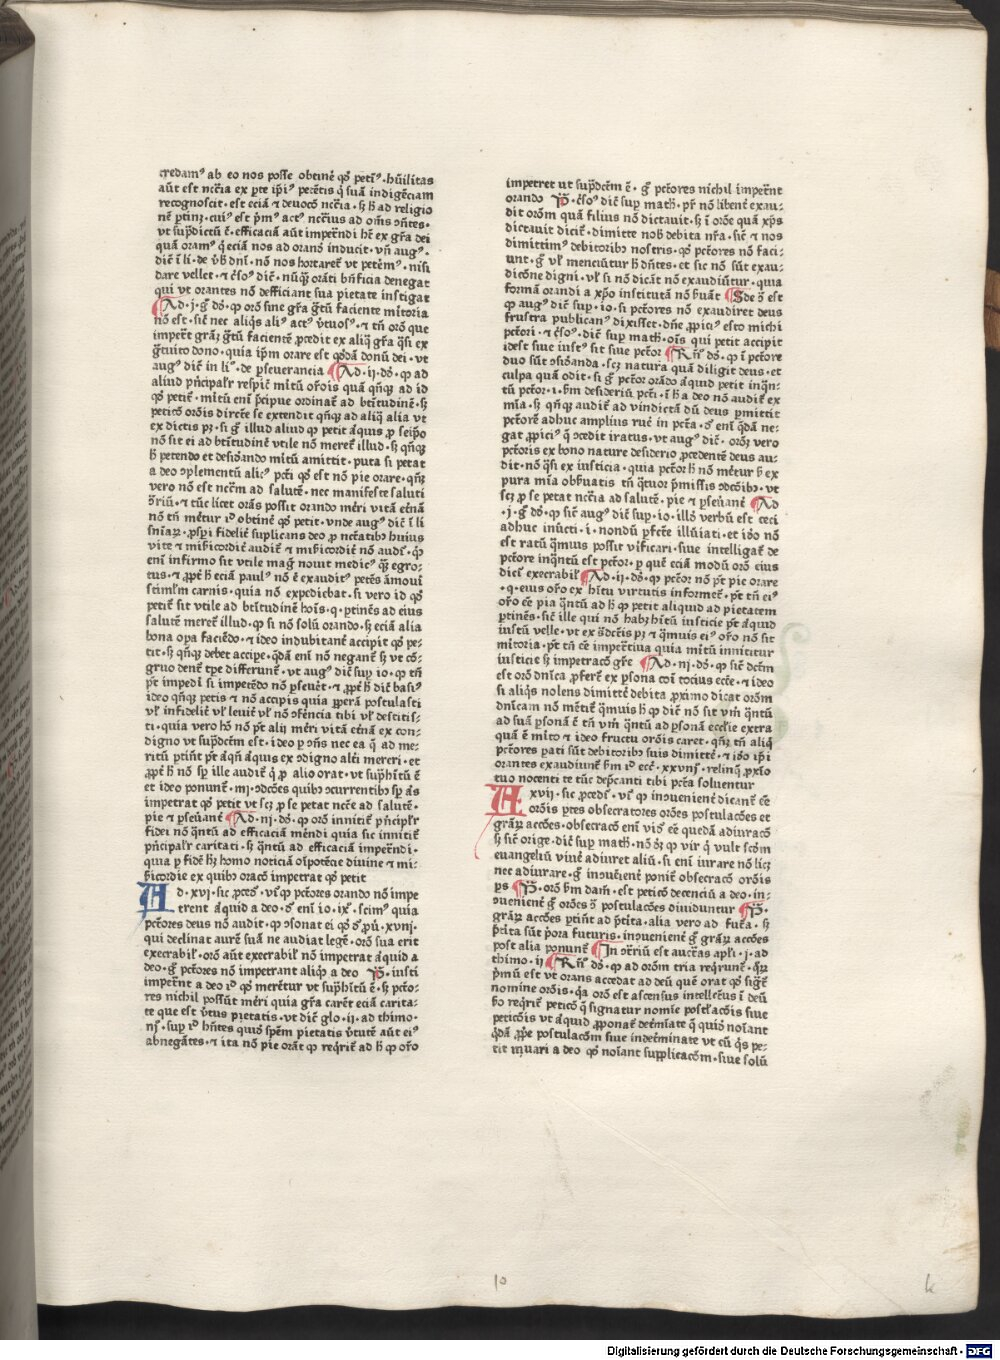 credam⁹ ab eo nos posse obtinẽ qđ petim⁹ · hũilitas
aũt est nccĩa ex pte ip̃i⁹ petẽtis q̃ suã indigẽciam
recognoscit · est eciã ⁊ deuocõ nccĩa · sꝫ h̃ ad religio
nẽ ptinꝫ · cui⁹ est pm⁹ act⁹ nccĩus ad om̃s ɔñtes ·
vt sup̃dictũ ẽ · efficaciã aũt impetrñdi hẽt ex grã dei
quã oram⁹ q̃ eciã nos ad orandũ inducit · vñ aug⁹ ·
dic̃ ĩ li · de v̾b̾ dñi · nõ nos hortaret̃ vt petẽm⁹ · nisi
dare vellet · ⁊ c̾so⁹ dic̃ · nũq̃ orãti bñficia denegat
qui vt orantes nõ defficiant sua pietate instigat
Ad · j · g̾ ds̃ · ꝙ orõ sine grã gratũ faciente m̾itoria
nõ est · sic̃ nec aliq̃s ali⁹ act⁹ v̾tuos⁹ · ⁊ tñ orõ que
impetrat grãꝫ gtũ facientẽ ꝓcedit ex aliq̃ grã q̃si ex
gtuito dono · quia ip̃m orare est qđdã donũ dei · vt
aug⁹ dic̃ in li⁰ · de p̾seuerancia Ad · ij · ds̃ · ꝙ ad
aliud p̾ncipal̃r respic̃ m̾itũ orõis quã qñqꝫ ad id
qđ petit̃ · m̾itũ eni p̾cipue ordinat̃ ad btĩtudinẽ · sꝫ
peticõ orõis dircte se extendit qñqꝫ ad aliq̃ alia vt
ex dictis pꝫ · si g̾ illud aliud qđ petit aliquis ꝓ seip̃o
nõ sit ei ad btĩtudinẽ vtile nõ meret̃ illud · sꝫ qñqꝫ
h̾ petendo et desid̾ando m̾itũ amittit · puta si petat
a deo ɔplementũ alic⁹ pcti qđ est nõ pie orare · qñqꝫ
vero nõ est nccm̃ ad salutẽ · nec manifeste saluti
ɔ̃riũ · ⁊ tũc licet orãs possit orando m̾eri vitã et̾nã
nõ tñ m̾etur id obtinẽ qđ petit · vnde aug⁹ dic̃ ĩ li
snĩaꝝ · ꝓsp̾i fidelit̾ suplicans deo ꝓ nctatibꝫ huius
vite ⁊ mĩcordit̾ audit̃ ⁊ mĩcordit̾ nõ audit̃ · qđ
eni infirmo sit vtile magꝭ nouit medic⁹ q̃ꝫ egro-
tus · ⁊ ꝓpt̾ h̾ eciã paul⁹ nõ ẽ exaudit⁹ petẽs ãmou̾i
stiml̃m carnis · quia nõ expediebat · si vero id qđ
petit̃ sit vtile ad btĩtudinẽ hoĩs · q̃ ptinẽs ad eius
salutẽ meret̃ illud · ꝙ si nõ solũ orando · sꝫ eciã alia
bona opa faciẽdo · ⁊ ideo indubitant̾ accipit qđ pe-
tit · sꝫ qñqꝫ debet accipe · q̃dã eni nõ negant̃ sꝫ vt cõ-
gruo dent̃ tpe differunt̃ · vt aug⁹ dic̃ sup̾ io · ꝙ tñ
pt̃ impedi̾ si impetẽdo nõ p̾seuet̃ · ⁊ ꝓpt̾ h̾ dic̃ basi⁹
ideo qñqꝫ petis ⁊ nõ accipis quia ꝓperã postulasti
vl̾ infidelit̾ vl̾ leuit̾ vl̾ nõ ɔfẽncia tibi vl̾ destitis-
ti · quia vero hõ nõ pt̃ alij m̾eri vitã et̾nã ex con-
digno vt sup̃dcm̃ est · ideo p ɔñs nec ea q̃ ad me-
ritũ ptiñt pt̃ aliqñ aliquis ex ɔdigno alt̾i mereri · et
ꝓpt̾ h̾ nõ sp̃ ille audit̃ q̃ ꝓ alio orat · vt sup̃hĩtũ ẽ
et ideo ponunt̃ · iiij · ɔdcões quibꝫ ɔcurrentibꝫ sp̃ aliquis
impetrat qđ petit vt scꝫ ꝓ se petat nccẽ ad salutẽ ·
pie ⁊ p̾seu̾ant̾ Ad · iij · ds̃ · ꝙ orõ innitit̃ p̾ncipl̾r
fidei nõ q̃ntũ ad efficaciã m̾endi quia sic innitit̃
p̾ncipal̾r caritati · sꝫ q̃ntũ ad efficaciã impetrñdi ·
quia p fidẽ hꝫ homo noticiã oĩpotẽcie diuine ⁊ mi-
s̾icordie ex quibꝫ oracõ impetrat qđ petit
Ad · xvj · sic ꝓcedit̃ · vr̃ ꝙ pctores orando nõ impe
trent aliquid a deo · dr̃ eni io · ix⁰ · scim⁹ quia
pctores deus nõ audit · ꝙ ɔsonat ei qđ dr̃ ꝓu̾ · xxviij ·
qui declinat aurẽ suã ne audiat legẽ · orõ sua erit
execrabil̾ · orõ aũt execrabil̾ nõ impetrat aliquid a
deo · g̾ pctores nõ impetrant aliqđ a deo P̾ · iusti
impetrñt a deo id qđ meretur vt sup̃hĩtũ ẽ · sꝫ pcto-
res nichil possũt m̾eri quia grã carẽt eciã carita-
te que est v̾tus pietatis · vt dic̃ glo · ij · ad thimo ·
iij · sup̾ id hñtes quidẽ spẽm pietatis v̾tutẽ aũt ei⁹
abnegãtes · ⁊ ita nõ pie orãt ꝙ reqrit̃ ad h̾ ꝙ orõ
impetret ut sup̃dcm̃ ẽ · g̾ pctores nichil impetrñt
orando P̾ · c̾so⁹ dic̃ sup̾ math̾ · pr̃ nõ libent̾ exau-
dit orõm quã filius nõ dictauit · sꝫ ĩ orõe quã xp̃s
dictauit dicit̃ · dimitte nob̾ debita nrã · sic̃ ⁊ nos
dimittim⁹ debitoribꝫ nostris · qđ pctores nõ faci-
unt · g̾ vl̾ menciũtur h̾ dñtes · et sic nõ sũt exau-
dicõne digni · vl̾ si nõ dicãt nõ exaudiũtur · quia
formã orandi a xp̃o institutã nõ s̾uãt Sꝫ ɔ̃ est
ꝙ aug⁹ dic̃ sup̾ · io · si pctores nõ exaudiret deus
frustra publican⁹ dixisset · dñe ꝓpici⁹ esto michi
pctori · ⁊ c̾so⁹ · dic̃ sup̾ math̾ · oĩs qui petit accipit
idest siue iust⁹ sit siue pctor Rñ ds̃ · ꝙ ĩ pctore
duo sũt ɔsid̾anda · scꝫ natura quã diligit deus · et
culpa quã odit · si g̾ pctor orãdo aliquid petit inq̃n-
tũ pctor · i · s̾m desideriũ pcti · ĩ h̾ a deo nõ audit̃ ex
mĩa · sꝫ qñqꝫ audit̃ ad vindictã dũ deus p̾mittit
pctorẽ adhuc amplius rue̾ in pctã · ds̃ eni q̃dã ne-
gat ꝓpici⁹ q̃ ɔcedit iratus · vt aug⁹ dic̃ · orõꝫ vero
pctoris ex bono nature desiderio ꝓcedentẽ deus au-
dit · nõ q̃si ex iusticia · quia pctor h̾ nõ m̾etur sꝫ ex
pura mĩa obs̾uatis tñ q̃tuor p̾missis ɔdcõibꝫ · vt
scꝫ ꝓ se petat nccĩa ad salutẽ · pie ⁊ p̾seu̾ant̾ Ad
· j · g̾ ds̃ · ꝙ sic̃ aug⁹ dic̃ sup̾ · io · illđ verbũ est ceci
adhuc inũcti · i · nondũ p̾fcte illũiati · et iđo nõ
est ratũ q̃muis possit v̾ificari · siue intelligat̃ de
pctore inq̃ntũ est pctor · p quẽ eciã modũ orõ eius
dicit̃ execrabil̾ Ad · ij · ds̃ · ꝙ pctor nõ pt̃ pie orare
· q̃ · eius orõ ex hĩtu virtutis informet̃ · pt̃ tñ ei⁹
orõ eẽ pia q̃ntũ ad h̾ ꝙ petit aliquid ad pietatem
ptinẽs · sic̃ ille qui nõ habꝫ hĩtũ iusticie pt̃ aliquid
iustũ velle · vt ex sup̃dictis pꝫ ⁊ q̃muis ei⁹ orõ nõ sit
m̾itoria · pt̃ tñ eẽ impetrĩua quia m̾itũ innititur
iusticie sꝫ impetracõ grẽ Ad · iij · ds̃ · ꝙ sic̃ dctm̃
est orõ dnĩca ꝓfert̃ ex psona coĩ tocius eccẽ · ⁊ ideo
si aliq̃s nolens dimitte̾ debita ꝓximo dicat orõm
dnĩcam nõ mẽtit̃ q̃muis h̾ ꝙ dic̃ nõ sit vm̃ q̃ntũ
ad suã psonã ẽ tñ vm̃ q̃ntũ ad psonã eccl̾ie extra
quã ẽ m̾ito ⁊ ideo fructu orõis caret · qñqꝫ tñ aliq̃
pctores pati sũt debitoribꝫ suis dimitte̾ · ⁊ iđo ip̃i
orantes exaudiunt̃ s̾m id ecc̾ · xxviij · relinq̃ ꝓxĩo
tuo nocenti te tũc dep̾canti tibi pctã soluentur
Ad xvij · sic ꝓcedit̃ · vr̃ ꝙ incɔuenient̾ dicant̃ eẽ
orõis p̾tes obsecratores orões postulacões et
grãꝝ accões · obsecracõ eni vid⁹ eẽ quedã adiuracõ
sꝫ sic̃ orige · dic̃ sup̾ math̾ · nõ oꝫ ꝙ vir q̃ vult scdm̃
euangeliũ viue̾ adiuret aliũ · si eni iurare nõ licꝫ
nec adiurare · g̾ incɔueñit̾ ponit̃ obsecracõ orõis
ps P̾ · orõ s̾m dam̾ · est peticõ decenciũ a deo · in-
ɔuenient̾ g̾ orões ɔ̃ postulacões diuiduntur P̾ ·
grãꝝ accões ptiñt ad p̾tita · alia vero ad futã · sꝫ
p̾tita sũt p̾ora futuris · incɔuenient̾ g̾ grãꝝ accões
post alia ponunt̃ In ɔ̃riũ est auctãs apl̾i · j · ad
thimo · ij Rñ ds̃ · ꝙ ad orõm tria reqrunt̃ · q̃ꝝ
p̾mũ est vt orans accedat ad deũ quẽ orat qđ sigt̾
nomine orõis · q̃a orõ est ascensus intellectus ĩ deũ
s̾o reqrit̃ peticõ q̃ signatur nomie postl̾acõis siue
peticõis vt aliquid ꝓponat̃ det̾miate q̃ quid̾ noĩant
q̃dã ꝓpe postulacõm siue indet̾minate vt cũ q̃s pe-
tit iuuari a deo qđ noĩant supplicacõm · siue solũ
10
k
Digitalisierung gefördert durch die Deutsche Forschungsgemeinschaft - DFG